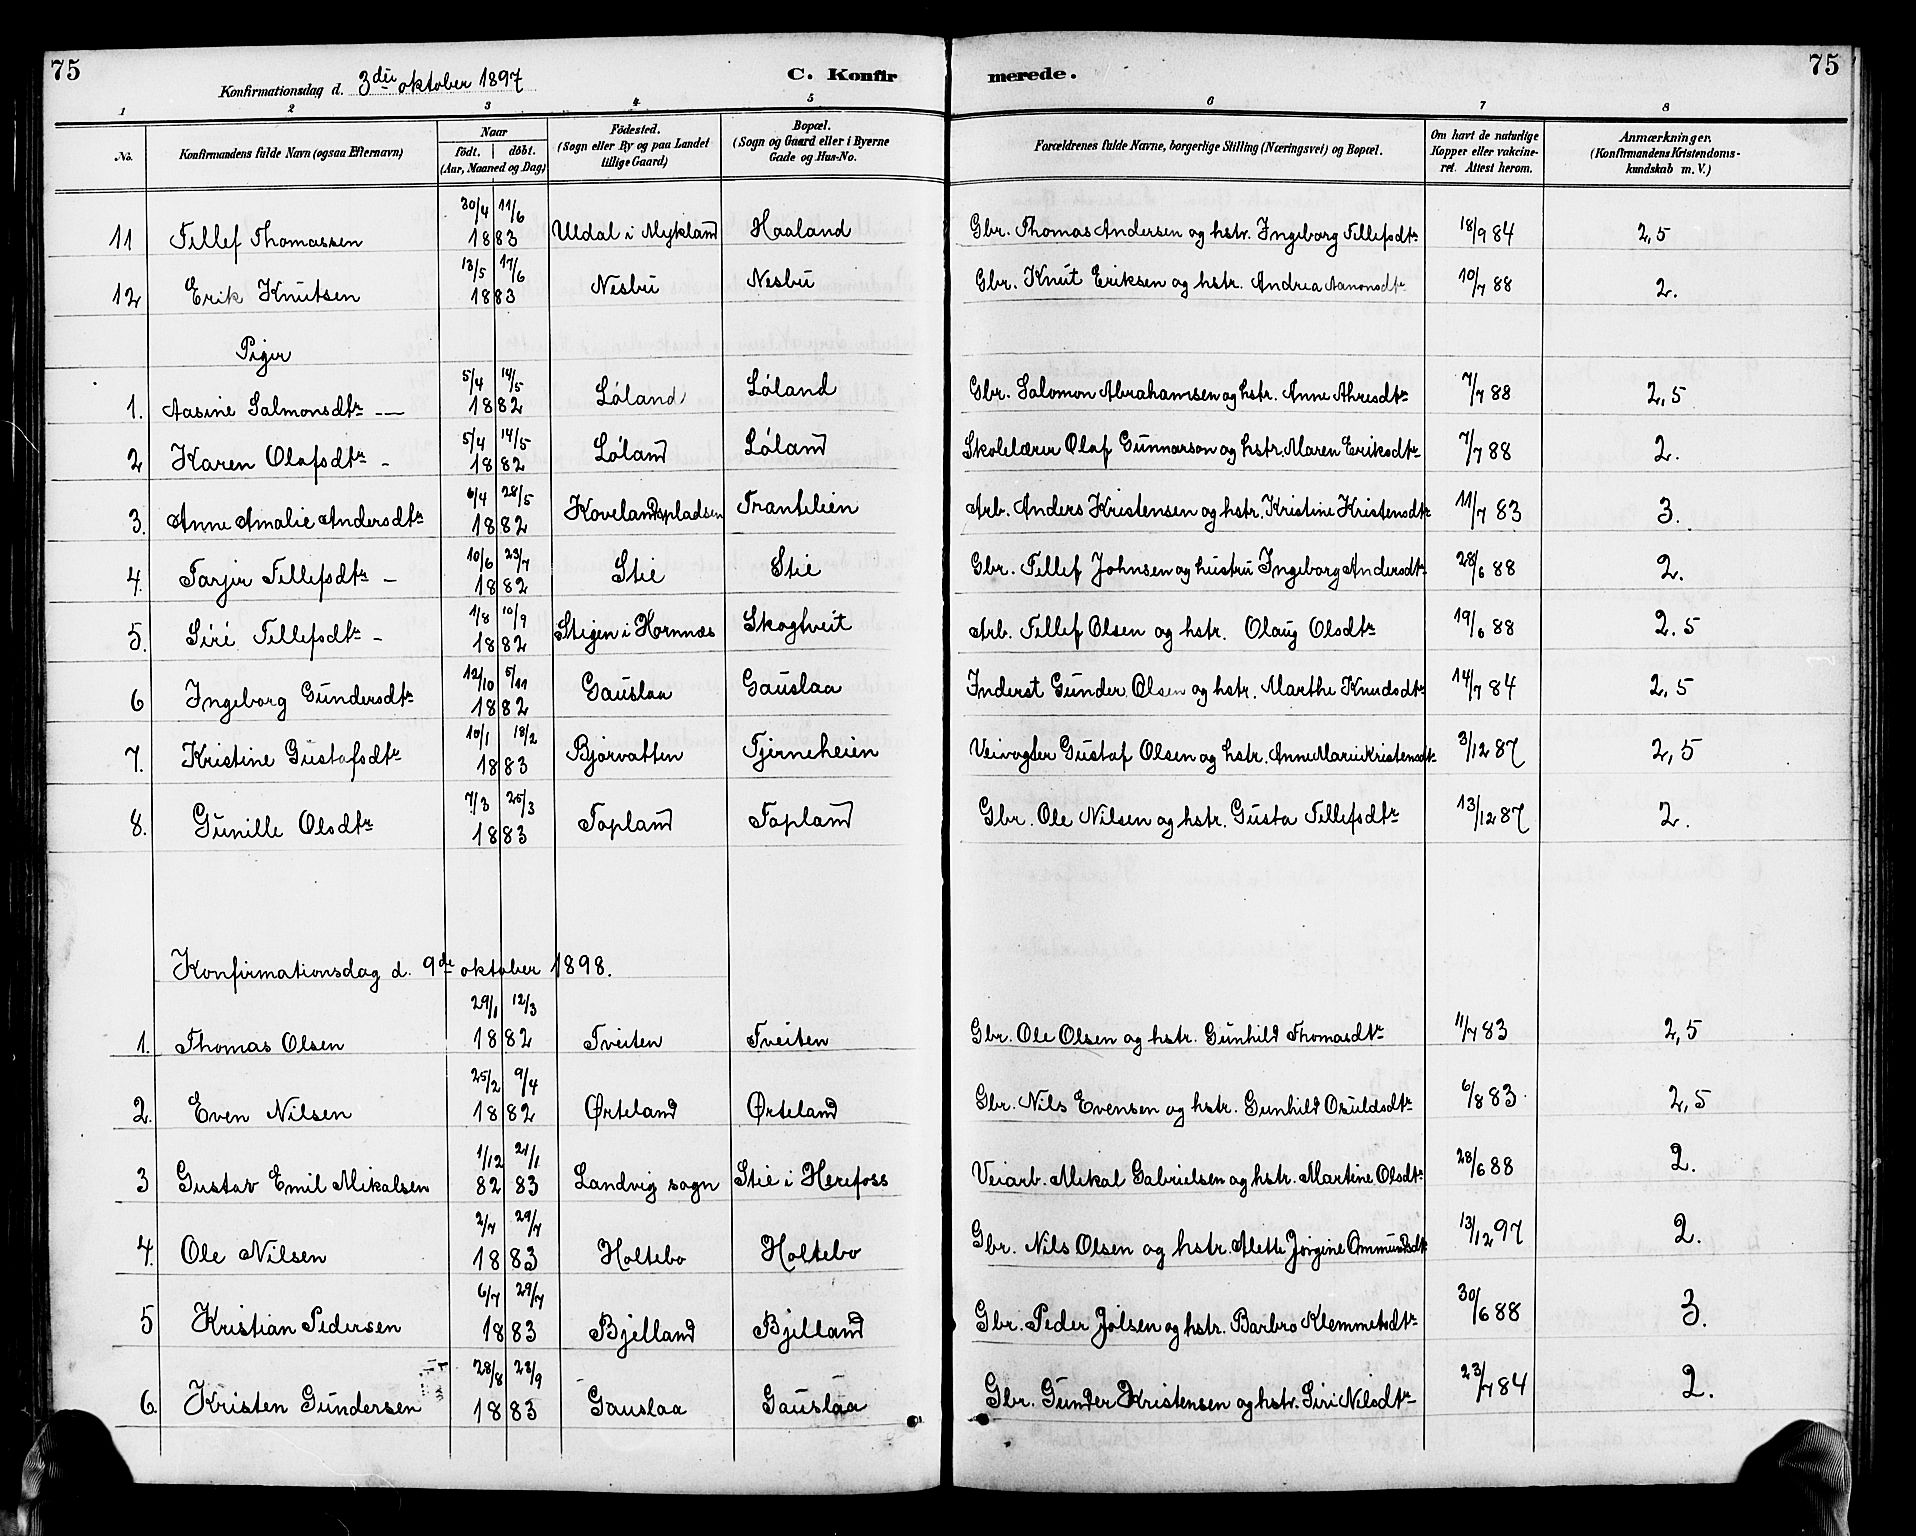 75
C. Konfirmerede.
75
Konfirmationsdag d. 3die oktober 1897
1 2 3 4 5 6 7 8
No. Konfirmandens fulde Navn (ogsaa Efternavn) Naar født. døbt. (Aar, Maaned og Dag) Fødested. (Sogn eller By og paa Landet tillige Gaard) Bopæl. (Sogn og Gaard eller i Byerne Gade og Hus-No. Forældrenes fulde Navne, borgerlige Stilling (Næringsvei) og Bopæl. Om havt de naturlige Kopper eller vakcineret. Attest herom. Anmærkninger. (Konfirmandens Kristendomskundskab m. V.)
11 Tellef Thomassen 30/4 11/6 1883 Uldal i Mykland Haaland Gbr. Thomas Andersen og hstr. Ingeborg Tellefsdtr 18/9 84 2,5
12 Erik Knutsen 13/5 17/6 1883 Nesbu Nesbu Gbr. Knut Eriksen og hstr. Andrea Aanonsdtr 10/7 88 2.
Piger
1. Aasine Salmonsdtr — 5/4 14/5 1882 Løland Løland Gbr. Salomon Abrahamsen og hstr. Anne Ahresdtr 7/7 88 2,5
2 Karen Olafsdtr - 5/4 14/5 1882 Løland Løland Skolelærer Olaf Gunnarson og hstr. Maren Eriksdtr 7/7 88 2.
3. Anne Amalie Andersdtr 6/4 28/5 1882 Kovelandspladsen Tranteleien Arb. Anders Kristensen og hstr. Kristine Kristensdtr 11/7 83 3.
4. Tarjer Tellefsdtr — 10/6 23/7 1882 Stie Stie Gbr. Tellef Johnsen og hustru Ingeborg Andersdtr 28/6 88 2.
5. Siri Tellefsdtr - 1/8 10/9 1882 Stigen i Hornnæs Skogtveit Arb. Tellef Olsen og hstr. Olaug Olsdtr 19/6 88 2.5
6 Ingeborg Gundersdtr 12/10 5/11 1882 Gauslaa Gauslaa Inderst Gunder Olsen og hstr. Marthe Knudsdtr 14/7 84 2,5
7. Kristine Gustafsdtr 10/1 18/2 1883 Bjørvatten Tjerneheien Veivogter Gustaf Olsen og hstr. Anne Marie Kristensdtr 3/12 87 2,5
8. Gunille Olsdtr 7/3 25/3 1883 Topland Topland Gbr. Ole Nilsen og hstr. Gusta Tellefsdtr 13/12 87 2.
Konfirmationsdag d. 9de oktober 1898.
1. Thomas Olsen 29/1 12/3 1882 Tveiten Tveiten Gbr. Ole Olsen og hstr. Gunhild Thomasdtr 11/7 83 2,5
2. Even Nilsen 25/2 9/4 1882 Ørteland Ørteland Gbr. Nils Evensen og hstr. Gunhild Osuldsdtr 6/8 83 2,5
3 Gustav Emil Mikalsen 1/12 21/1 82 83 Landvig sogn Stie i Herefoss Veiarb. Mikal Gabrielsen og hstr. Martine Olsdtr 28/6 88 2.
4. Ole Nilsen 2/7 29/7 1883 Holtebo Holtebo Gbr. Nils Olsen og hstr. Alette Jørgine Ommundsdtr 13/12 97 2.
5 Kristian Pedersen 6/7 29/7 1883 Bjelland Bjelland Gbr. Peder Jølsen og hstr. Barbro Klemmetsdtr 30/6 88 3.
6 Kristen Gundersen 28/8 23/9 1883 Gauslaa Gauslaa Gbr. Gunder Kristensen og hstr. Siri Nilsdtr 23/7 84 2.